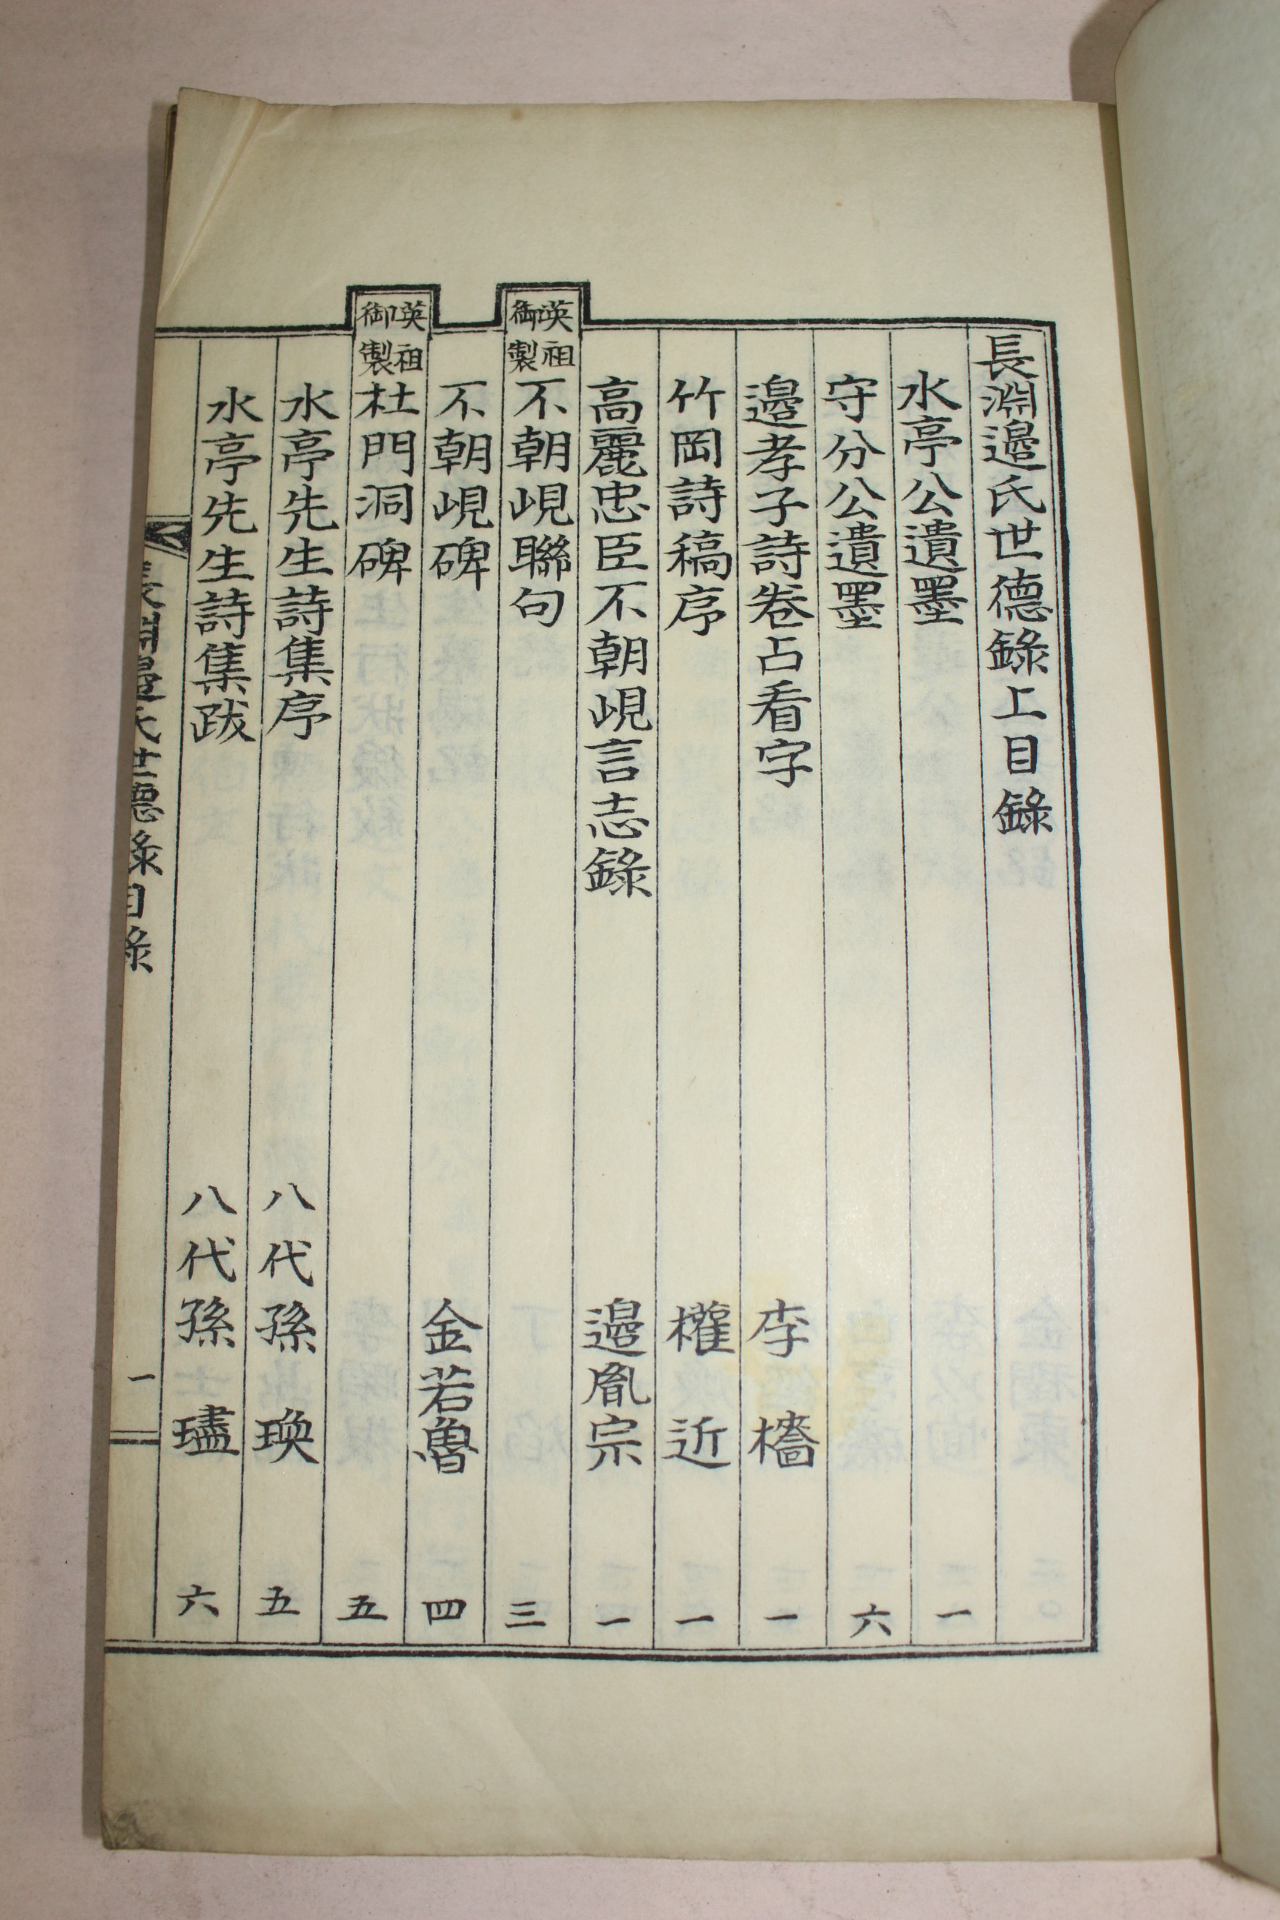 長淵邉氏世德錄上目錄
水亭公遺墨 一
守分公遺墨 六
邉孝子詩卷占看字 李檣 一
竹岡詩稿序 權近 一
高麗忠臣不朝峴言志錄 邉胤宗 一
英祖御製不朝峴聯句 三
不朝峴碑 金若魯 四
英祖御製杜門洞碑 五
水亭先生詩集序 八代孫 瑍 五
水亭先生詩集跋 八代孫 璶 六
長淵邉氏世德錄目錄 一